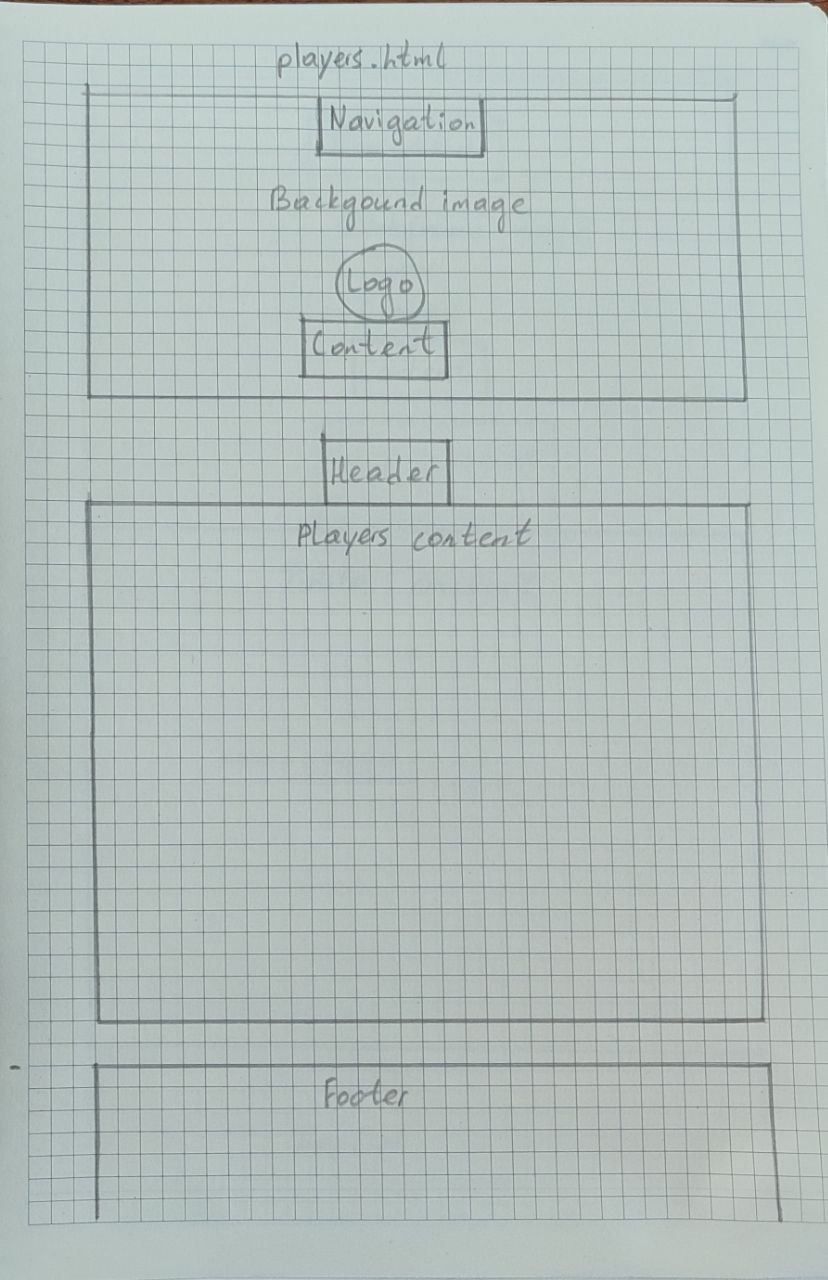 players.html
Navigation
Backgound image
Logo
Content
Header
Players content
Footer